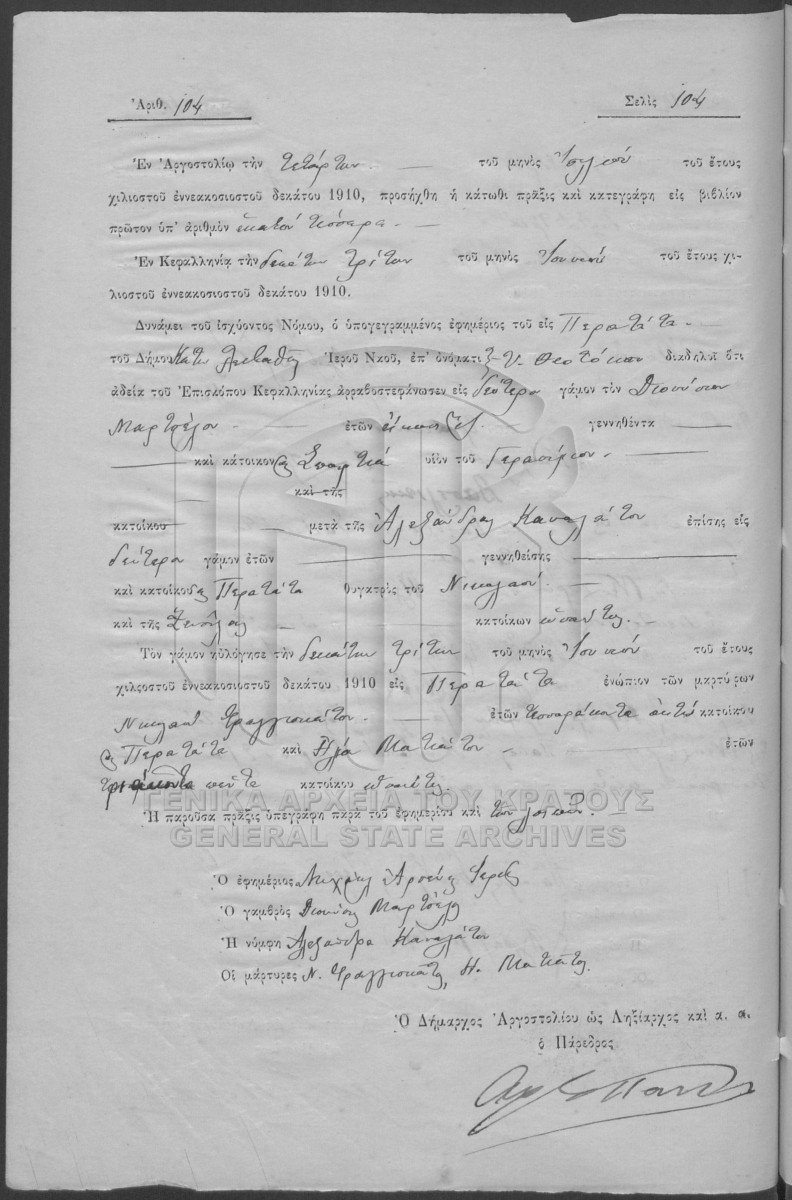 Ἀριθ. 104 Σελὶς 104
Ἐν Ἀργοστολίῳ τὴν τετάρτην τοῦ μηνὸς Ἰουλίου τοῦ ἔτους
χιλιοστοῦ ἐννεακοσιοστοῦ δεκάτου 1910, προσήχθη ἡ κάτωθι πρᾶξις καὶ κατεγράφη εἰς βιβλίον
πρῶτον ὑπ' ἀριθμὸν ἑκατόν τέσσαρα.
Ἐν Κεφαλληνίᾳ τὴν δεκάτην τρίτην τοῦ μηνὸς Ἰουνίου τοῦ ἔτους χι-
λιοστοῦ ἐννεακοσιοστοῦ δεκάτου 1910.
Δυνάμει τοῦ ἰσχύοντος Νόμου, ὁ ὑπογεγραμμένος ἐφημέριος τοῦ εἰς Περατάτα
τοῦ Δήμου Κάτω Λειβαθοῦς Ἱεροῦ Ναοῦ, ἐπ' ὀνόματι Θεοτόκου διαδηλοῖ ὅτι
ἀδείᾳ τοῦ Ἐπισκόπου Κεφαλληνίας ἀρραβοστεφάνωσεν εἰς δεύτερον γάμον τὸν Διονύσιον
Μαρτσέλον ἐτῶν εἴκοσι ἕξ γεννηθέντα
καὶ κάτοικον εἰς Σπαρτιά υἱὸν τοῦ Γερασίμου.
καὶ τῆς
κατοίκου μετὰ τῆς Ἀλεξάνδρας Καναλάτου ἐπίσης εἰς
δεύτερον γάμον ἐτῶν γεννηθείσης
καὶ κατοίκου εἰς Περατάτα θυγατρὸς τοῦ Νικολάου.
καὶ τῆς κατοίκων
Τὸν γάμον ηὐλόγησε τὴν δεκάτην τρίτην τοῦ μηνὸς Ἰουνίου τοῦ ἔτους
χιλιοστοῦ ἐννεακοσιοστοῦ δεκάτου 1910 εἰς Περατάτα ἐνώπιον τῶν μαρτύρων
Νικολάου Φραγγισκάτου. ἐτῶν τεσσαράκοντα ὀκτώ κατοίκου
εἰς Περατάτα καὶ Ηλία Ματιάτου ἐτῶν
τριάκοντα πέντε κατοίκου
ΓΕΝΙΚΑ ΑΡΧΕΙΑ ΤΟΥ ΚΡΑΤΟΥΣ
Ἡ παροῦσα πρᾶξις ὑπεγράφη παρὰ τοῦ ἐφημερίου καὶ τῶν λοιπῶν.
GENERAL STATE ARCHIVES
Ὁ ἐφημέριος Ἱερεύς
Ὁ γαμβρὸς Διονύσιος Μαρτσέλος
Ἡ νύμφη Αλεξάνδρα Καναλάτου
Οἱ μάρτυρες Ν. Φραγγισκάτος, Ηλ. Ματιάτος.
Ὁ Δήμαρχος Ἀργοστολίου ὡς Ληξίαρχος καὶ α. α.
ὁ Πάρεδρος